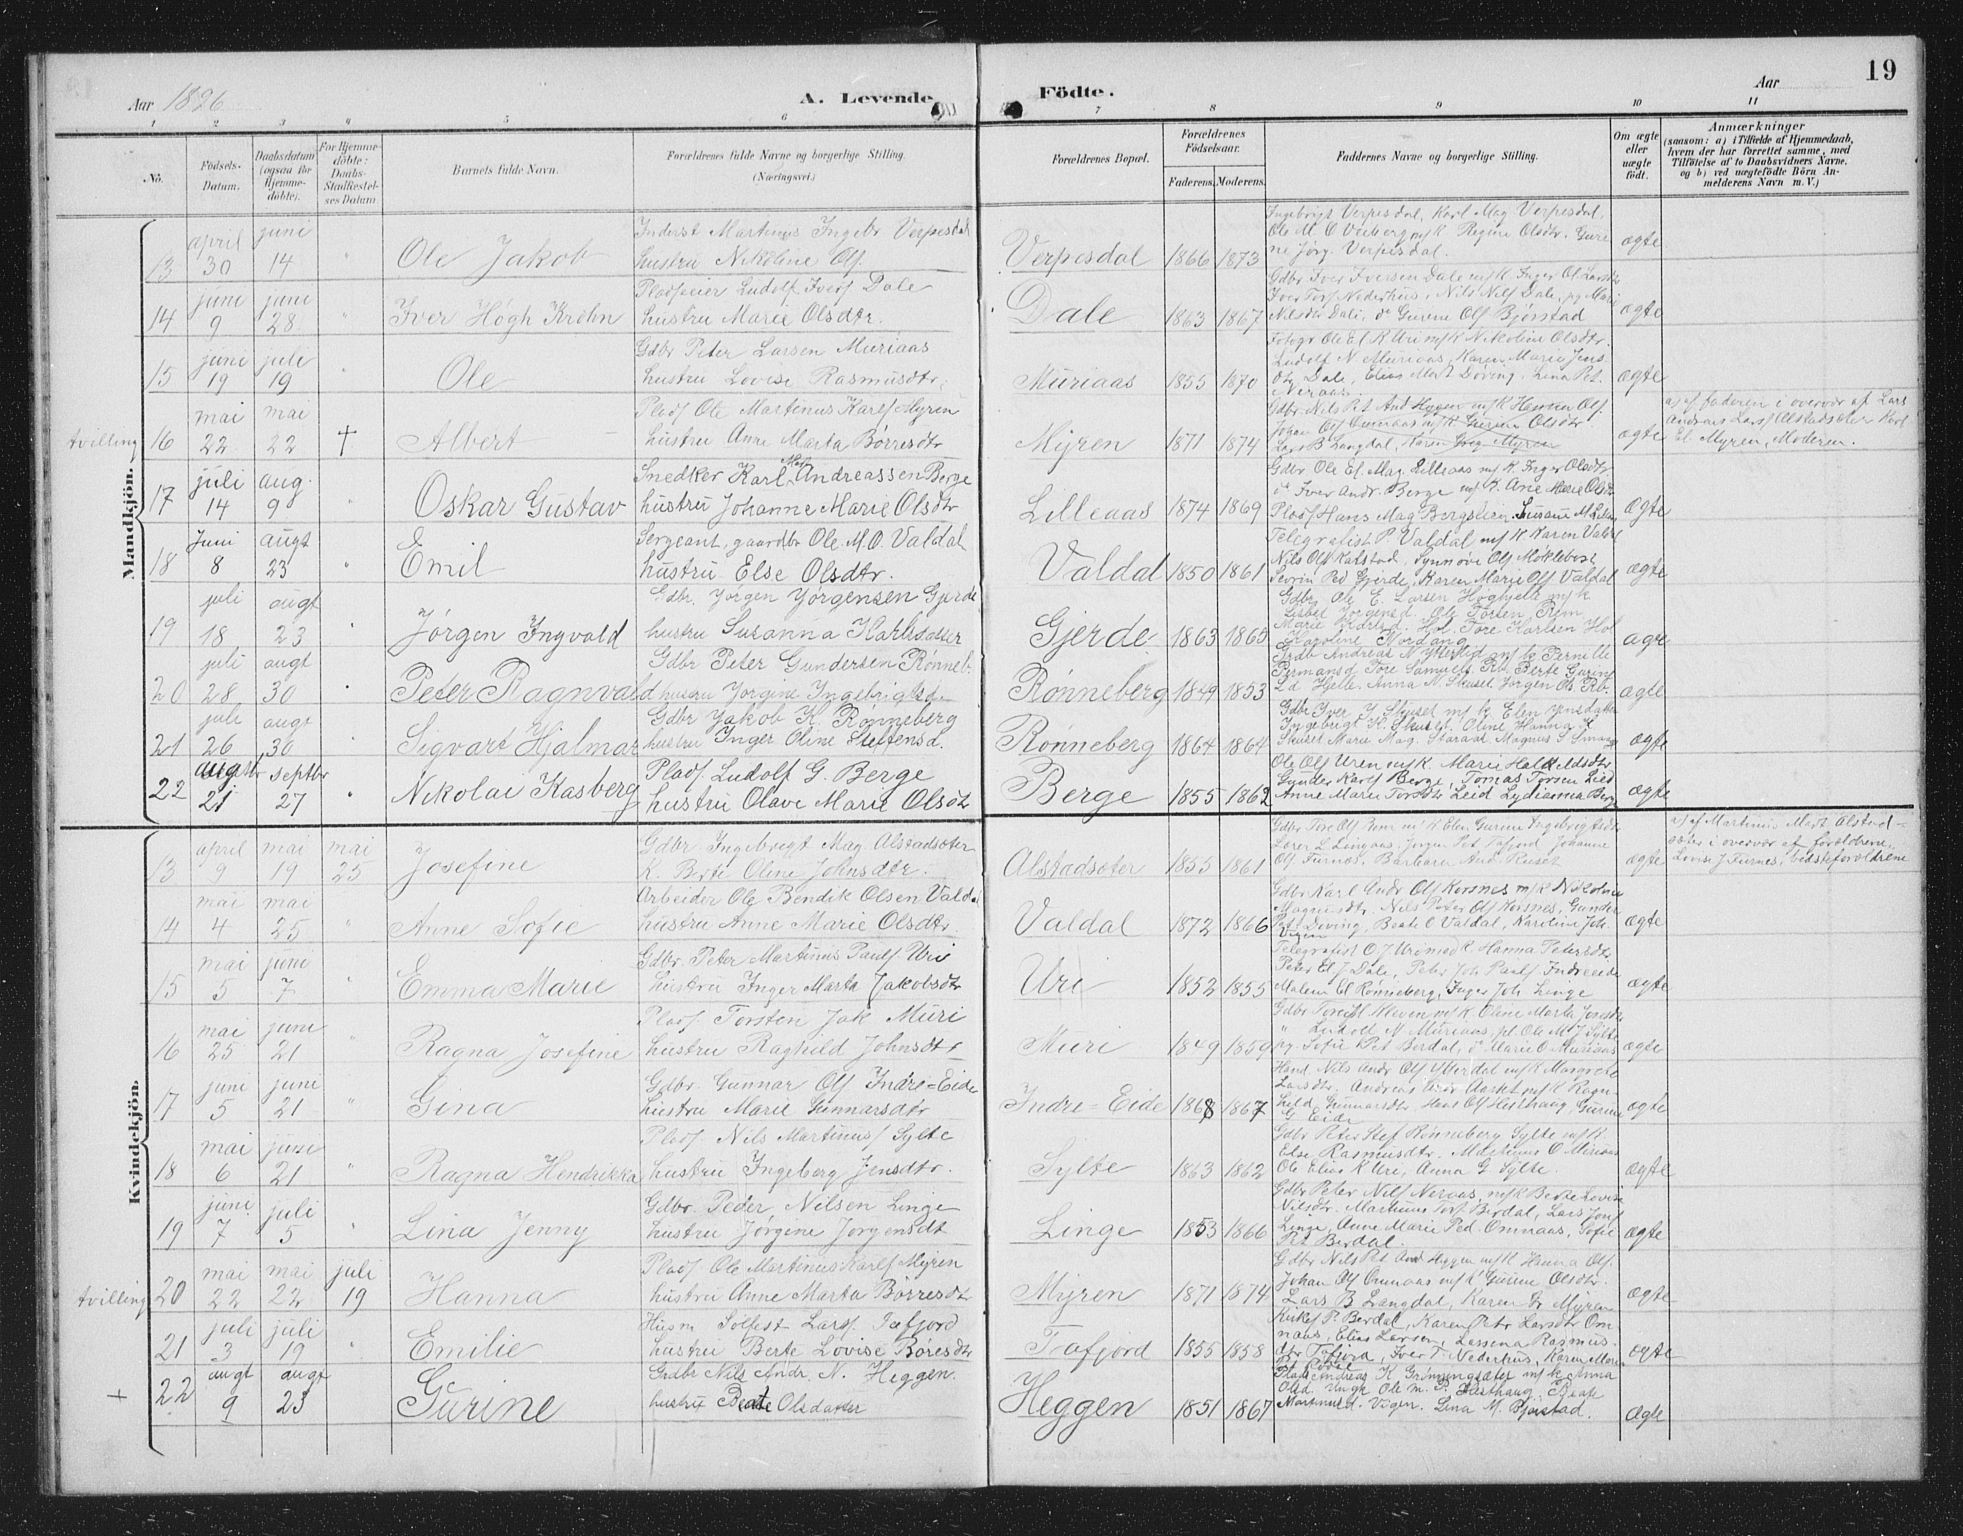 19
Aar 1896
A. Levende
Födte.
Aar
1 2 3 4 5 6 7 8 9 10 11
No.
Födsels-
Datum.
Daabsdatum
(ogsaa för
Hjemme-
döbte).
For Hjemme-
döbte:
Daabs-
Stadfæstel-
ses Datum
Barnets fulde Navn.
Forældrenes fulde Navne og borgerlige Stilling.
(Næringsvei.)
Forældrenes Bopæl.
Forældrenes
Födselsaar.
Faderens. Moderens.
Faddernes Navne og borgerlige Stilling.
Om ægte
eller
uægte
födt.
Anmærkninger
(saasom: a) i Tilfælde af Hjemmedaab,
hvem der har forrettet samme, med
Tilföielse af to Daabsvidners Navne.
og b) ved uægtefödte Börn An-
melderens Navn m. V.)
Mandkjön.
13 april 30 juni 14 " Ole Jakob
Inderst Martinus Ingebr Verpesdal
hustru Nikoline Ols.
Verpesdal 1866 1873
Ingebrigt Verpesdal, Karl Mag Verpesdal,
Regine Olsdtr. Guri
ne Jørg. Verpesdal.
ægte
14 juni 9 juni 28 " Iver Høgh Krohn
Pladseier Ludolf Ivers Dale
hustru Marie Olsdtr.
Dale 1863 1867
Gdbr Iver Iversen Dale m/k Inger Ol. Larsdtr
Iver Tors Nederhus, Nils Nils Dale, pg Mari
Nilsdtr Dale, do Gurine Ols Bjørstad
ægte
15 juni 19 juli 19 " Ole
Gdbr Peter Larsen Muriaas
hustru Lovise Rasmusdtr,
Muriaas 1855 1870
Fotogr Ole El. K Uri m/k Nikoline Olsdtr.
Ludolf N Muriaas, Karen Marie Jens
dtr Dale, Elias Mart Døving. Lina Pet.
Neraas.
ægte
tvilling 16 mai 22 mai 22 † Albert
Plads Ole Martinus Karls Myren
hustru Anne Marta Børresdtr
Myren 1871 1874
Gdbr Nils Pet And Heggen m/k Hanna Ols.
Johan Ols Omnaas m/k Gurine Olsdtr
Lars B Langdal, Karen Ivrg Myren
ægte
a) af faderen i overvær af Lars
Andreas Lars Alstadsæter Karl
El. Myren, Moderen.
17 juli 14 aug. 9 " Oskar Gustav
Snedker Karl Mag Andreassen Berge
hustru Johanne Marie Olsdtr
Lilleaas 1874 1869
Gdbr Ole El. Mag Lilleaas m/k. Inger Olsdtr
do Iver Andr. Berge m/k. Ane Marie Olsdtr
Plads Hans Mag Bergslien. Susane M. Lilleaas
ægte
18 Juni 8 augt 23 " Emil
Sergeant, gaardbr Ole M.O. Valdal
hustru Else Olsdtr.
Valdal 1850 1861
Telegrafist P. Valdal m/k Karen Valdal
Nils Ols Kalstad, Synnøve Ols Moklebost
Sevrin Ped Gjerde, Karen Marie Ols Valdal
ægte
19 juli 18 augt 23 " Jørgen Ingvald
Gdbr. Jørgen Jørgensen Gjerde
hustru Susanna Karlsdatter
Gjerde. 1863 1865
Gdbr, Ole E. Larsen Høghjelle m/k
Lisbet Jørgensd. Ole Torsen Rem
Marie Karlsd. Hol. Tore Karlsen Hol
Karoline Nordang
ægte
20 juli 28 augt 30 " Peter Ragnvald
Gdbr Peter Gundersen Rønneb.
hustru Jørgine Ingebrigtsd.
Rønneberg 1849 1853
Grdb Andreas N Ytterlid m/k Pernille
Permansd Tore Samuels. Rb. Berte Gurine
Ld Hjelle. Anna N. Skuset. Jørgen Ols. Rb.
ægte
21 juli 26 augt 30 " Sigvart Hjalmar
Gdbr Jakob K. Rønneberg
hustru Inger Oline Steffensd.
Rønneberg 1864 1864
Gdbr Iver J Skuset m/k Elen Jensdatter
Ingebrigt K. Skuset. Oline Hanna L
Skuset Marie Mag. Staraas Magnus S Smaage
ægte
22 augstr 21 septbr 27 " Nikolai Kasberg
Plads. Ludolf G. Berge
hustru Olave Marie Olsdtr
Berge 1855 1862
Ole Ols Uren m/k. Marie Halkildsdtr
Gunder Karls Berge, Tomas Torsen Lied
Anne Marie Torsdtr Leid Lydianna Berge
ægte
Kvindekjön.
13 april 9 mai 19 mai 25 Josefine
Gdbr Ingebrigt Mag Alstadsæter
K. Berte Oline Johnsdtr.
Alstadsæter 1855 1861
Gdbr Tore Ols Rem m/k Elen Gurine Ingebrigtsdtr
Lærer L Lingaas, Jørgen Pet Tafjord Johanne
Ols Furnes, Barbara And Ruset
ægte
a) af Martinus Mart Alstad-
sæter i overvær af forældrene,
Lovise J Furnes, bedsteforældrene
14 mai 4 mai 25 " Anne Sofie
Arbeider Ole Bendik Olsen Valdal
hustru Anne Marie Olsdtr.
Valdal 1872 1866
Gdbr Karl Andr Ols Korsnes m/k Nikoline
Magnusdtr, Nils Peter Ols Korsnes, Gunder
Pet Døving, Beate O Valdal, Karoline Joh.
Vigen
ægte
15 mai 5 juni 7 " Emma Marie
Gdbr. Peter Martinus Pauls Uri
hustru Inger Marta Jakobsdtr
Uri 1852 1855
Telegrafist O J Uri med K. Hanna Petersdtr
Peter El J Dale, Peter Joh Pauls Indreeide
Malene El Rønneberg, Inger Joh Linge
ægte
16 mai 25 juni 21 " Ragna Josefine
Plads. Torsten Jak Muri
hustru Raghild Johnsdtr
Muri 1849 1859
Gdbr Tore Kleven m/k Oline Marta Jensdtr
" Ludolf N Muriaas, pl. Ole M J Sylte
pg. Sofie Pet Berdal, do Marie O Muriaas
ægte
17 juni 5 juni 21 " Gina
Gdbr. Gunnar Ols Indre=Eide
hustru Marie Gunnarsdtr
Indre=Eide 1868 1867
Hand Nils Andr Ols Ytterdal m/k Margrete
Larsdtr. Andreas Aarset m/k Ragn-
hild Gunnarsdtr, Hans Ols Hesthaug, Gurine
G Eide
ægte
18 mai 6 juni 21 " Ragna Hendrikka
Plads. Nils Martinus Sylte
hustru Ingeberg Jensdtr.
Sylte 1863 1862
Gdbr Peter Stef Rønneberg Sylte m/k
Else Rasmusdtr. Martinus O Muriaas
Ole Elias K Uri, Anna G Sylte.
ægte
19 juni 7 juli 5 " Lina Jenny
Gdbr. Peder Nilsen Linge
hustru Jørgine Jørgensdt
Linge 1853 1866
Gdbr Peter Nils Neraas, m/k Berte Lovise
Nilsdtr. Martinus Tors Berdal, Lars Jons
Linge, Anne Marie Ped Omnaas, Sofie
Pet Berdal.
ægte
tvilling 20 mai 22 mai 22 juli 19 Hanna
Plads Ole Martinus Karls Myren
hustru Anne Marta Børresdtr
Myren 1871 1874
Gdbr Nils Pet And Heggen m/k Hanna Ols.
Johan Ols Omnaas m/k Gurine Olsdtr.
Lars B Langdal, Karen Myren
ægte
21 juli 3 juli 19 " Emilie
Husm Solfest Lars. Tafjord
hustru Berte Lovise Børesdtr
Tafjord 1855 1858
P. Berdal, Karen Petr Larsdtr Om
naas, Elias Larsen, Lassena Rasmus-
dtr Tafjord, Iver T. Nederhus, Karen Marie
ægte
+ 22 augt 9 augt 23 Gurine
Grdbr Nils Andr. N. Heggen.
hustru Beate Olsdatter
Heggen 1851 1867
Plads Andreas K Grønningsæter m/k Anna
Olsd. Ungk Ole M. P. Hesthaug, Beate
Martinusd. Vigen. Lina M. Bjørstad.
ægte